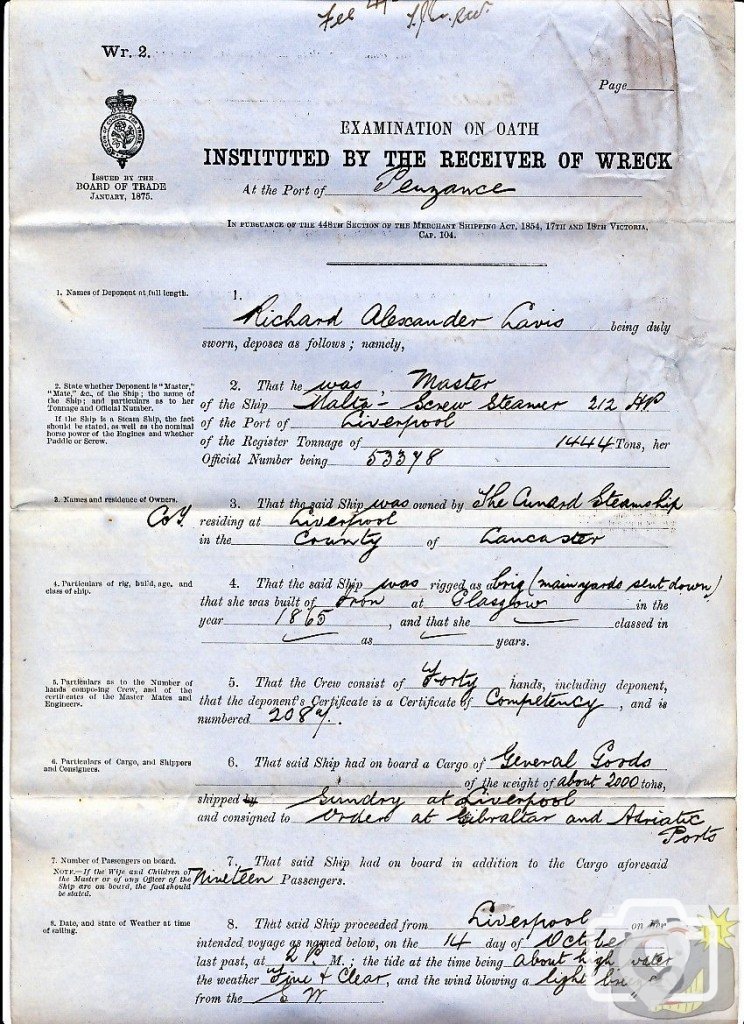 Fee
Wr. 2.
Page
ISSUED BY THE
BOARD OF TRADE
JANUARY, 1875.
EXAMINATION ON OATH
INSTITUTED BY THE RECEIVER OF WRECK
At the Port of Penzance
IN PURSUANCE OF THE 448TH SECTION OF THE MERCHANT SHIPPING ACT, 1854, 17TH AND 18TH VICTORIA,
CAP. 104.
1. Names of Deponent at full length.
1.
Richard Alexander Lavis being duly
sworn, deposes as follows; namely,
2. State whether Deponent is "Master,"
"Mate," &c., of the Ship; the name of
the Ship; and particulars as to her
Tonnage and Official Number.
If the Ship is a Steam Ship, the fact
should be stated, as well as the nominal
horse power of the Engines and whether
Paddle or Screw.
2. That he was Master
of the Ship Malta - Screw Steamer 212 HP
of the Port of Liverpool
of the Register Tonnage of 1444 Tons, her
Official Number being 53378
3. Names and residence of Owners.
3. That the said Ship was owned by The Cunard Steamship
Coy. residing at Liverpool
in the County of Lancaster
4. Particulars of rig, build, age, and
class of ship.
4. That the said Ship was rigged as a brig (main yards sent down)
that she was built of Iron at Glasgow in the
year 1865, and that she classed in
as years.
5. Particulars as to the Number of
hands composing Crew, and of the
certificates of the Master Mates and
Engineers.
5. That the Crew consist of Forty hands, including deponent,
that the deponent's Certificate is a Certificate of Competency, and is
numbered
6. Particulars of Cargo, and Shippers
and Consigners.
6. That said Ship had on board a Cargo of General Goods
of the weight of about 2000 tons,
shipped by Sundry at Liverpool
and consigned to Order at Gibraltar and Adriatic
Ports
7. Number of Passengers on board.
NOTE.—If the Wife and Children of
the Master or of any Officer of the
Ship are on board, the fact should
be stated.
7. That said Ship had on board in addition to the Cargo aforesaid
Nineteen Passengers.
8. Date, and State of Weather at time
of sailing.
8. That said Ship proceeded from Liverpool on her
intended voyage as named below, on the 14 day of October
last past, at 2 P. M.; the tide at the time being about high water
the weather Fine & Clear, and the wind blowing a light breeze
from the S W